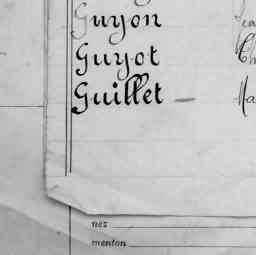 Guyon
Guyot
Guillet
nez
menton